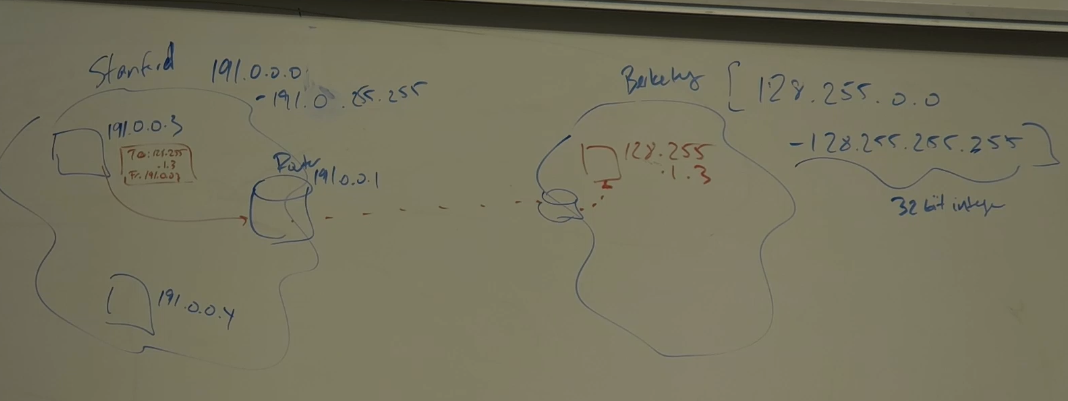 Stanford 191.0.0.0
-191.0.255.255
191.0.0.3
To: 128.255
.1.3
Fr: 191.0.0.3
Router
191.0.0.1
191.0.0.4
Berkeley [128.255.0.0
-128.255.255.255]
128.255
.1.3
32 bit integer